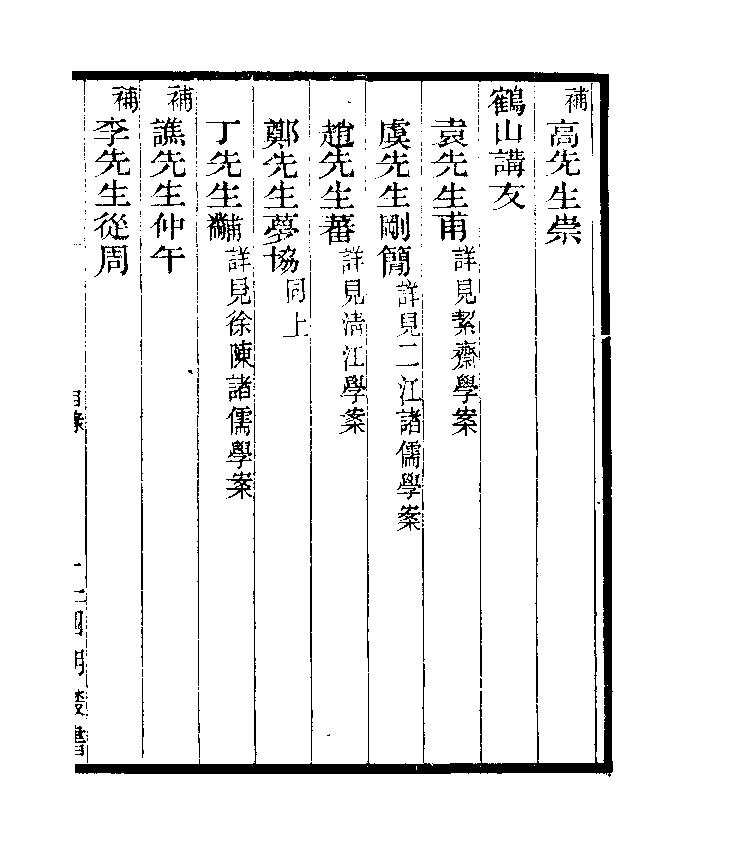 補高先生崇
鶴山講友
袁先生甫詳見絜齋學案
虞先生剛簡詳見二江諸儒學案
趙先生蕃詳見清江學案
鄭先生夢協同上
丁先生黼詳見徐陳諸儒學案
補譙先生仲午
補李先生從周
目錄
四明叢書